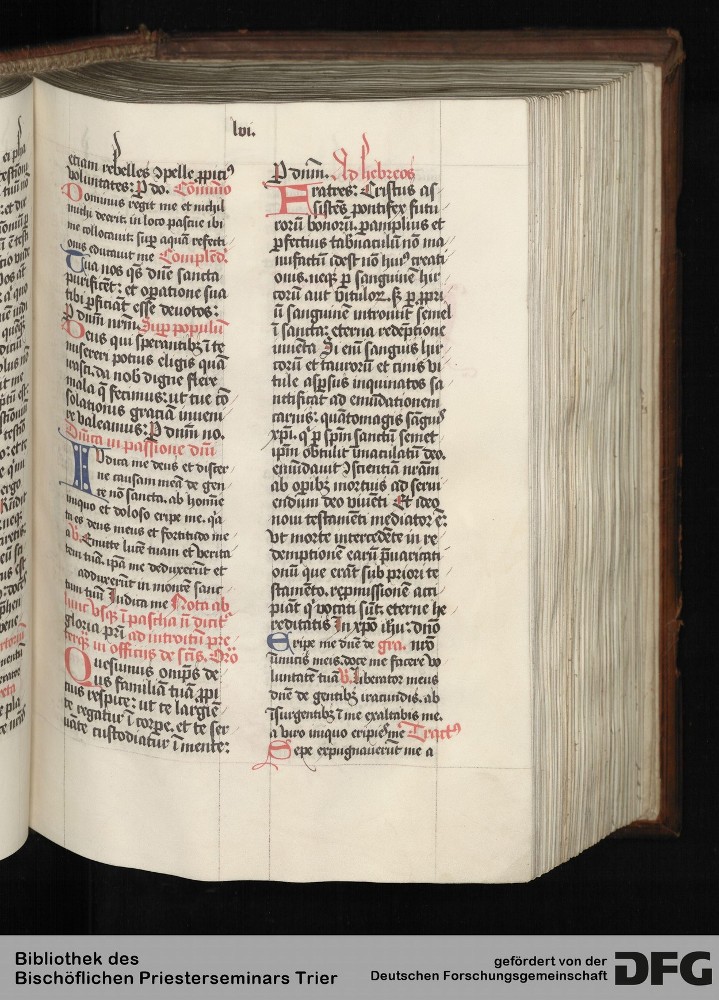 lvi.
etiam rebelles ↄpelle ꝓpiciꝰ
voluntates: P do. Cōmunio
Dominus regit me et nichil
michi deerit. in loco pascue ibi
me collocauit. suꝑ aquā refecti
onis educauit me Complēd.
Tua nos q̄s dn̄e sancta
purificēt: et oꝑatione sua
tibi ꝑficiāt esse deuotos:
P dūm nrm̄. Suꝑ populū
Deus qui sperantibꝫ ī te
misereri potius eligis quā
irasci. da nob digne flere
mala q̄ fecimus: ut tue cō
solationis graciā inueni
re valeamus: P dnūm no.
Dn̄ica in passione dn̄i
IVdica me deus et discer
ne causam meā de gen
te nō sancta. ab homīe
iniquo et doloso eripe me. q̄a
tu es deus meus et fortitudo me
a V. Emitte lucē tuam et verita
tem tuā. ip̄a me deduxerūt et
adduxerūt in montē sanc
tum tuū Iudica me Nota ab
hinc vsqꝫ ī pascha n̄ dicit᷑
gloria pr̄i ad introitū pre
terqꝫ in officijs de sc̄is. Orō
Quesumus omīps de
us familiā tuā ꝓpi
cius respice: ut te largiē
te regatur ī corpe. et te ser
uāte custodiatur ī mente:
P dnūm. Ad hebreos
Fratres: Cristus as
sistēs pontifex futu
rorū bonorū. ꝑ amplius et
ꝑfectius tabnaculū nō ma
nufactū idest nō huiꝰ creati
onis. neqꝫ ꝑ sanguinē hir
corū aut vitulorꝫ. sꝫ ꝑ ꝓpri
ū sanguinē introiuit semel
ī sancta: eterna redēptione
inuēta Si em̄ sanguis hir
corū et taurorū et cinis vi
tule asꝑsus inquinatos sa
nctificat ad emūdationem
carnis: quātomagis sāguīs
xp̄i. qꝰ ꝑ sp̄m sanctū semet
ip̄m obtulit ī maculatū deo.
emūdauit ↄscientiā nr̄am
ab opibꝫ mortuis ad serui
endum deo viuēti Et ideo
noui testamēti mediator ē:
Vt morte intercedēte in re
demptionem earū p̄uaricati
onū que erāt sub priori te
stamēto. repmissionē acci
piāt q̇ vocati sūt. eterne he
reditatis In xp̄o ihu: dn̄o
Eripe me dn̄e de gra. nrō
inimicis meis. doce me facere vo
luntatē tuā V. liberator meus
dn̄e de gentibꝫ iracūdis. ab
īsurgentibꝫ ī me exaltabis me.
a viro iniquo eripies me Tractꝰ
Sepe expugnauerūt me a
Bibliothek des
Bischöflichen Priesterseminars Trier
gefördert von der
Deutschen Forschungsgemeinschaft
DFG